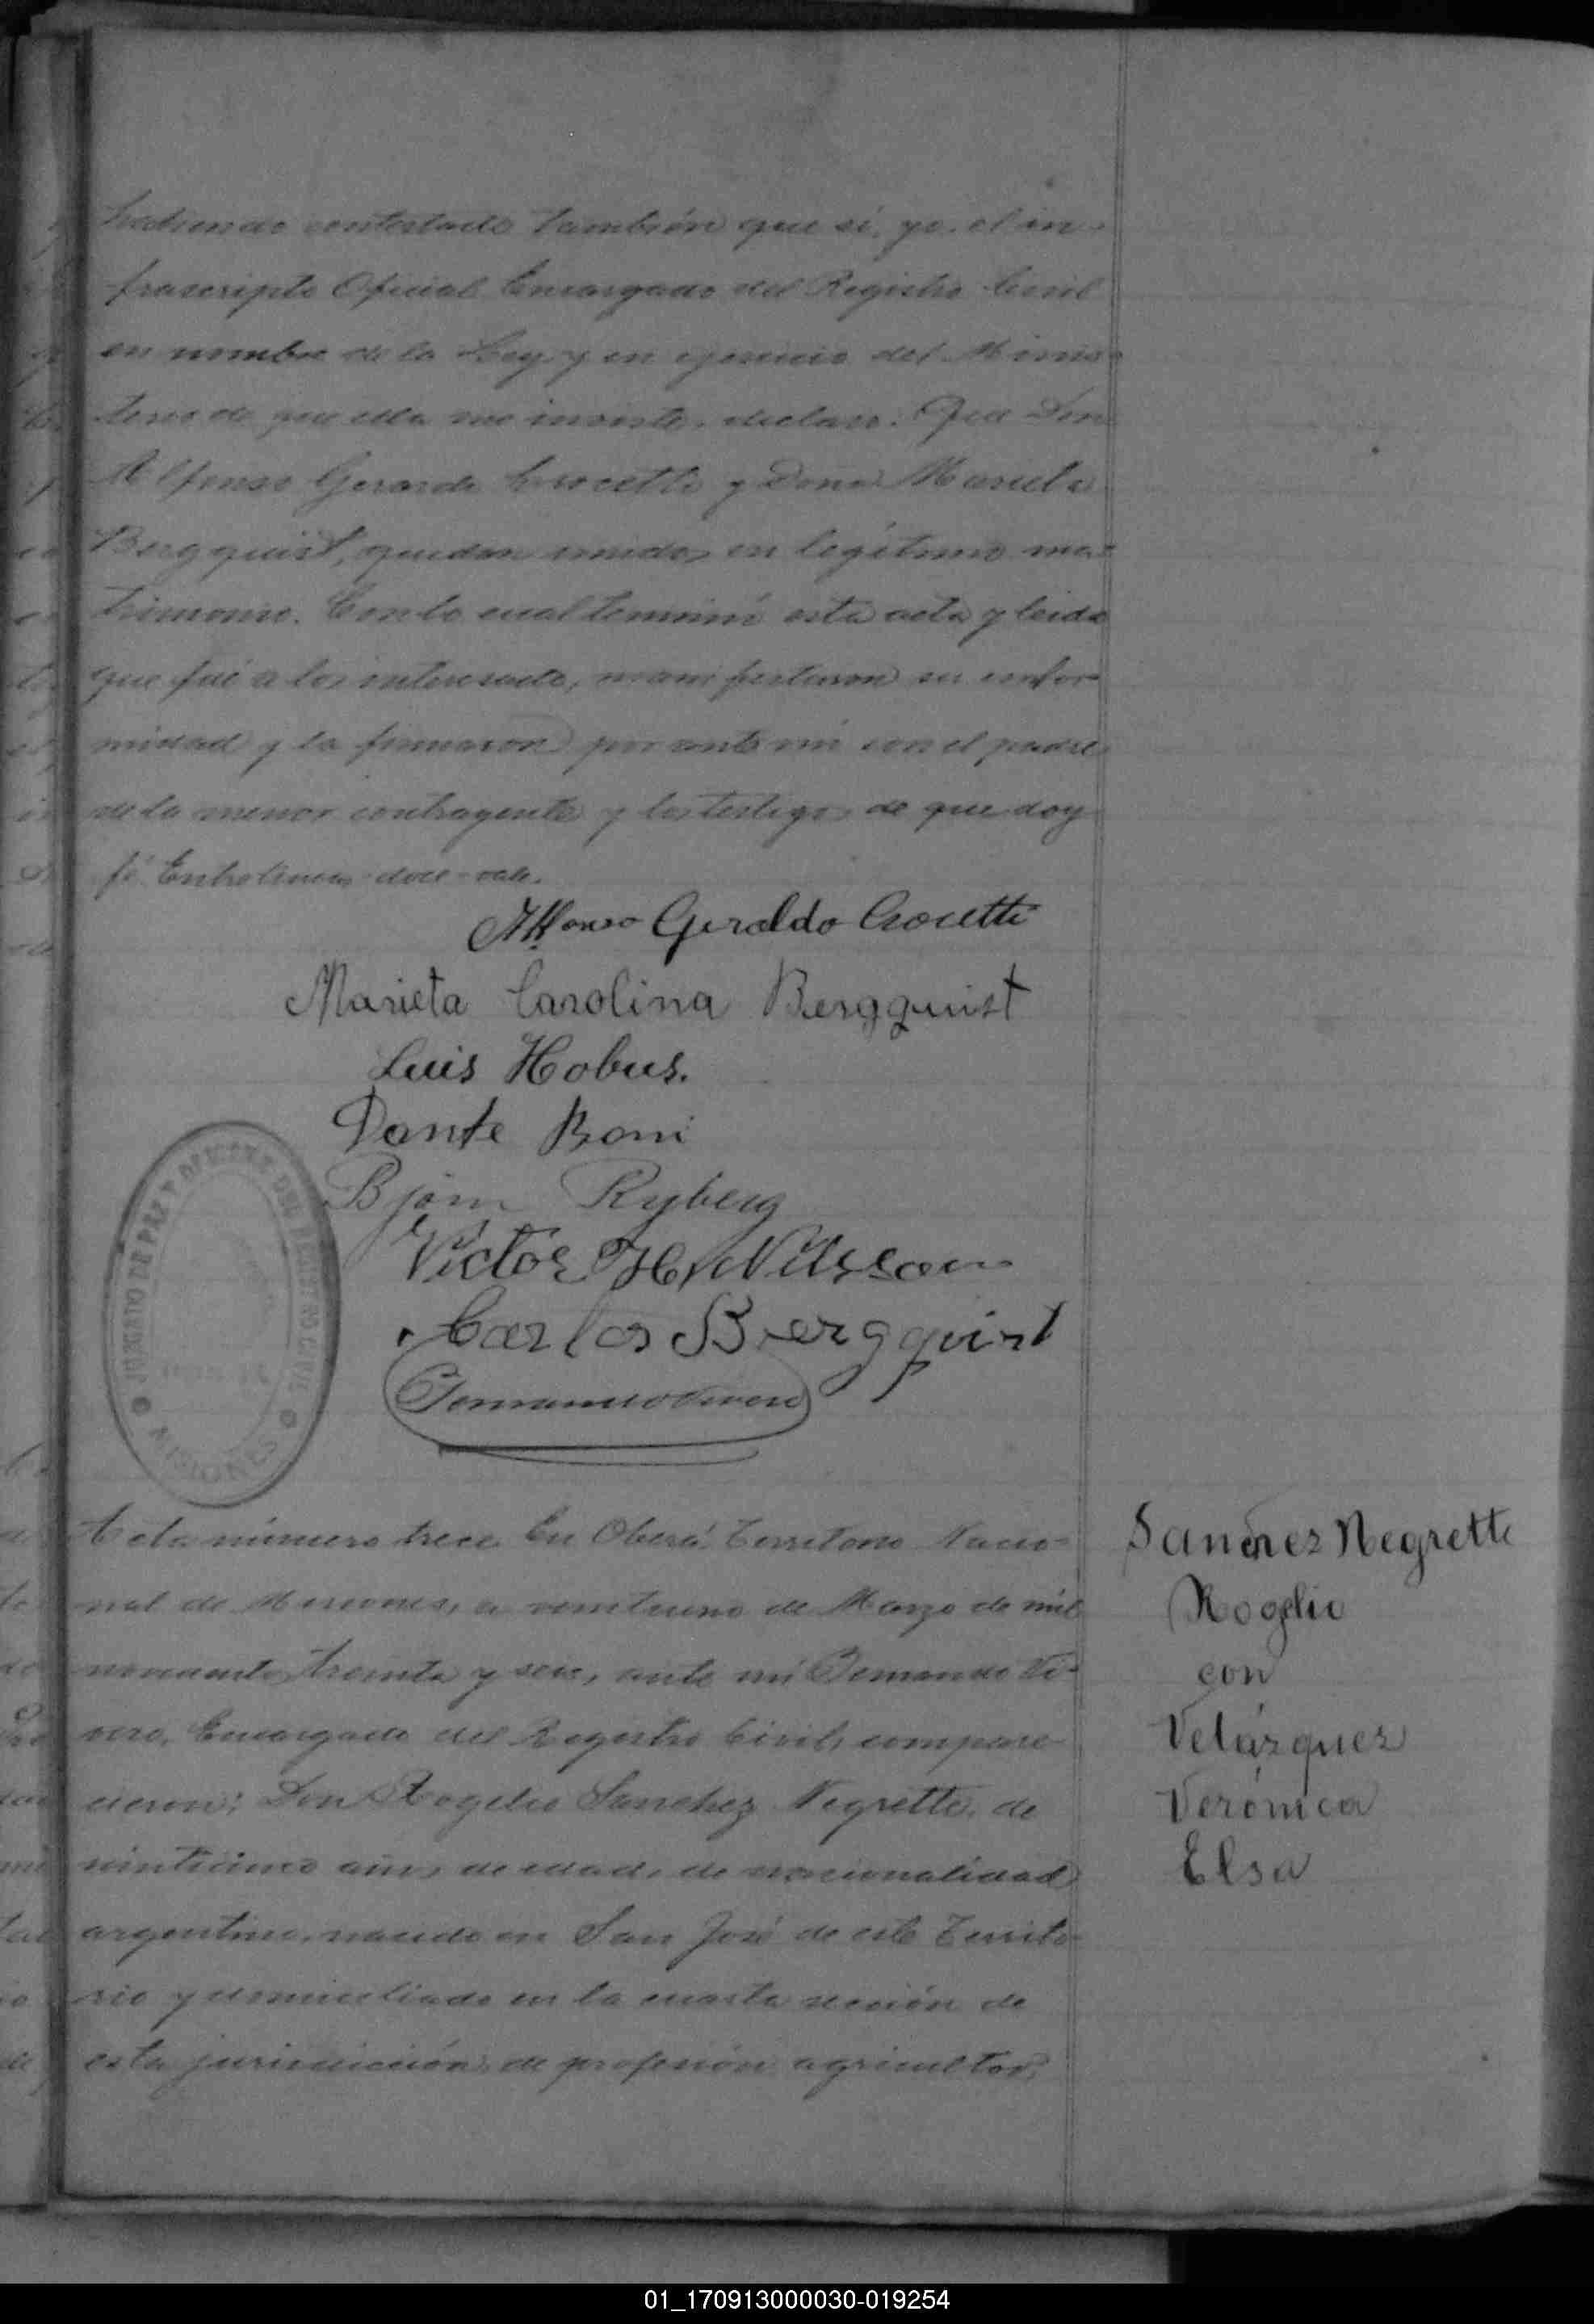 habiendo contestado también que sí, yo el in-
frascripto Oficial Encargado del Registro Civil
en nombre de la Ley y en ejercicio del Minis-
terio de que ella me inviste, declaro: Que Don
Alfonso Gerardo Crocetti y Dona Marieta
Bergquist, quedan unidos en legítimo ma-
trimonio. Con lo cual terminó esta acta y leida
que fué a los interesado, manifestaron su confor-
midad y la firmaron por ante mi con el padre
de la menor contrayente y los testigos de que doy
fé. Entrelineas-doce-vale.
Alfonso Geraldo Crocetti
Marieta Carolina Bergquist
Luis Hobus.
Dante Boni
Bjorn Ryberg
Victor H. Nilsson
Carlos Bergquist
JUZGADO DE PAZ Y OFICINA DEL REGISTRO CIVIL
MISIONES
Acta número trece. En Oberá, Territorio Nacio-
nal de Misiones, a veintiuno de Marzo de mil
novecientos treinta y seis, ante mi Vi-
vero, Encargado del Registro Civil, compare-
cieron: Don Rogelio Sanchez Negrette, de
veinticinco años de edad, de nacionalidad
argentino, nacido en San José de este Territo-
rio y domiciliado en la cuarta sección de
esta jurisdicción, de profesión agricultor,
Sanchez Negrette
Rogelio
con
Velázquez
Verónica
Elsa
01_170913000030-019254